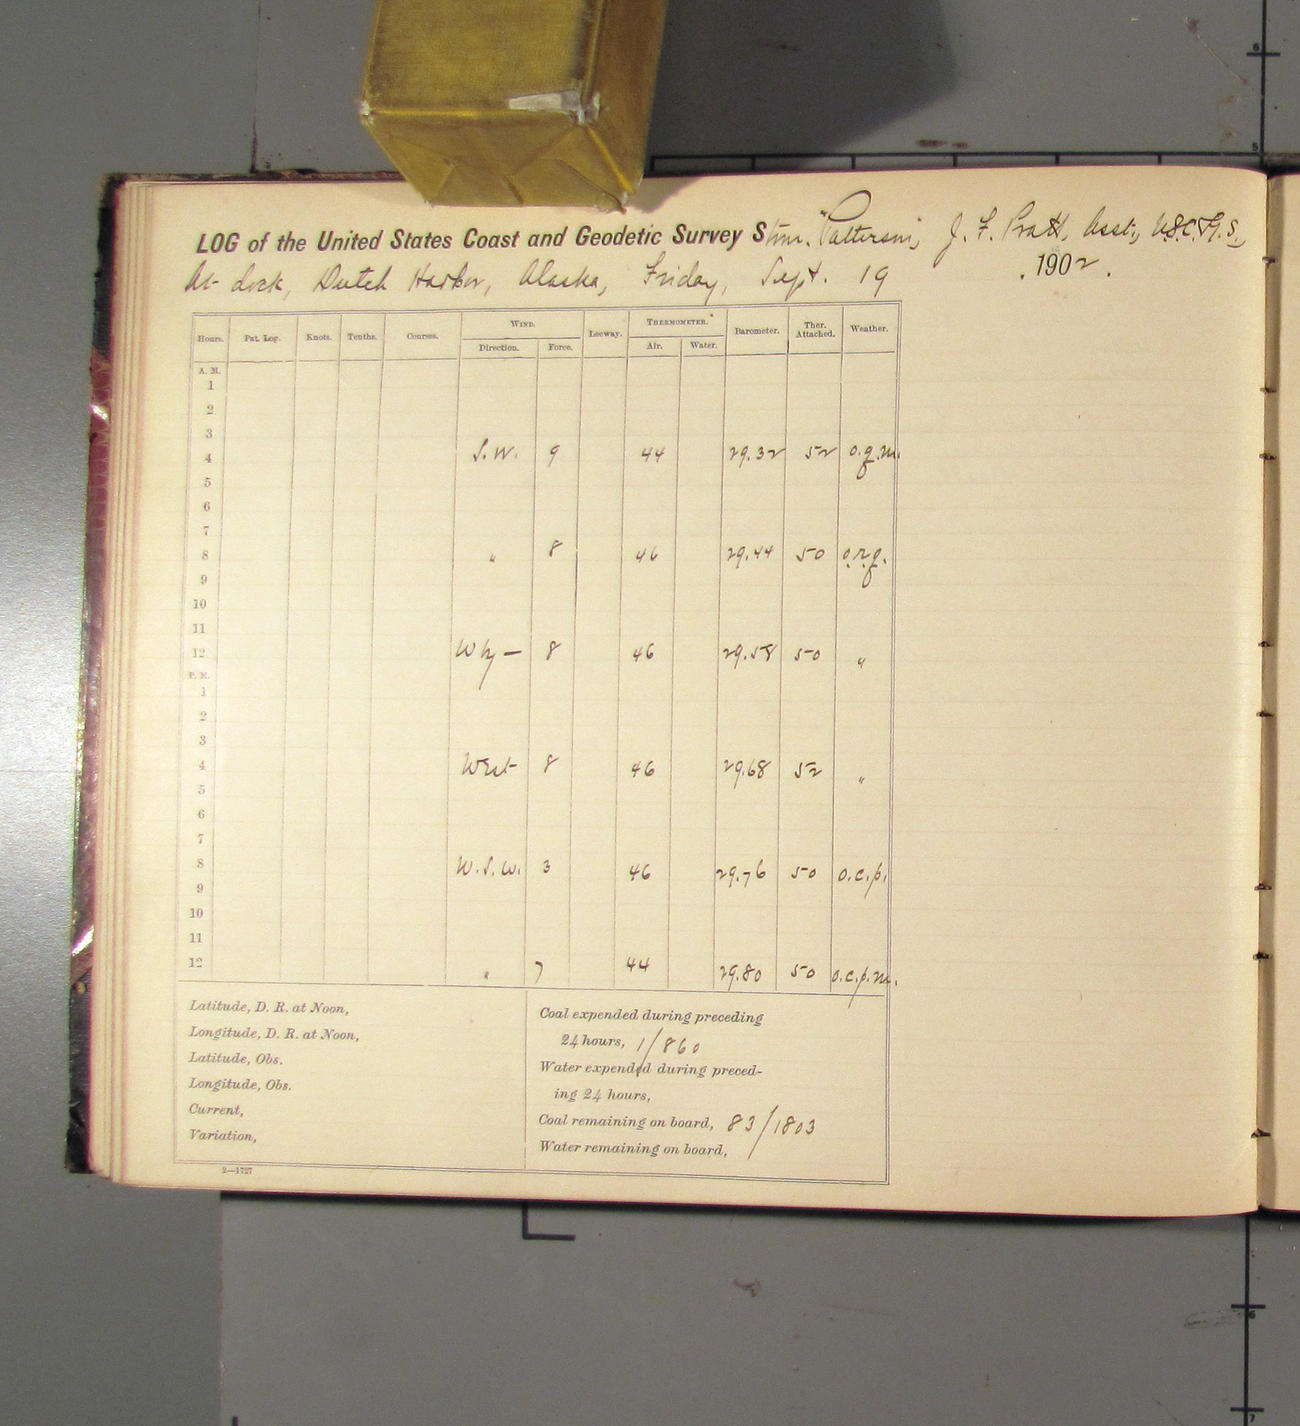 LOG of the United States Coast and Geodetic Survey Stmr. "Patterson", J. F. Pratt, Asst., U.S.C.&G.S.,
At dock, Dutch Harbor, Alaska, Friday, Sept. 19, 1902.
Hours. Pat. Log. Knots. Tenths. Courses. WIND. Leeway. THERMOMETER. Barometer. Ther. Attached. Weather.
Direction. Force. Air. Water.
A. M.
1
2
3
4 S.W. 9 44 29.32 52 o.q.m.
5
6
7
8 " 8 46 29.44 50 o.r.q.
9
10
11
12 Wly— 8 46 29.58 50 "
P. M.
1
2
3
4 West 8 46 29.68 52 "
5
6
7
8 W.S.W. 3 46 29.76 50 o.c.p.
9
10
11
12 " 7 44 29.80 50 o.c.p.m.
Latitude, D. R. at Noon,
Longitude, D. R. at Noon,
Latitude, Obs.
Longitude, Obs.
Current,
Variation,
Coal expended during preceding
24 hours, 1/860
Water expended during preced-
ing 24 hours,
Coal remaining on board, 83/1803
Water remaining on board,
2—1727
6
5
6
7